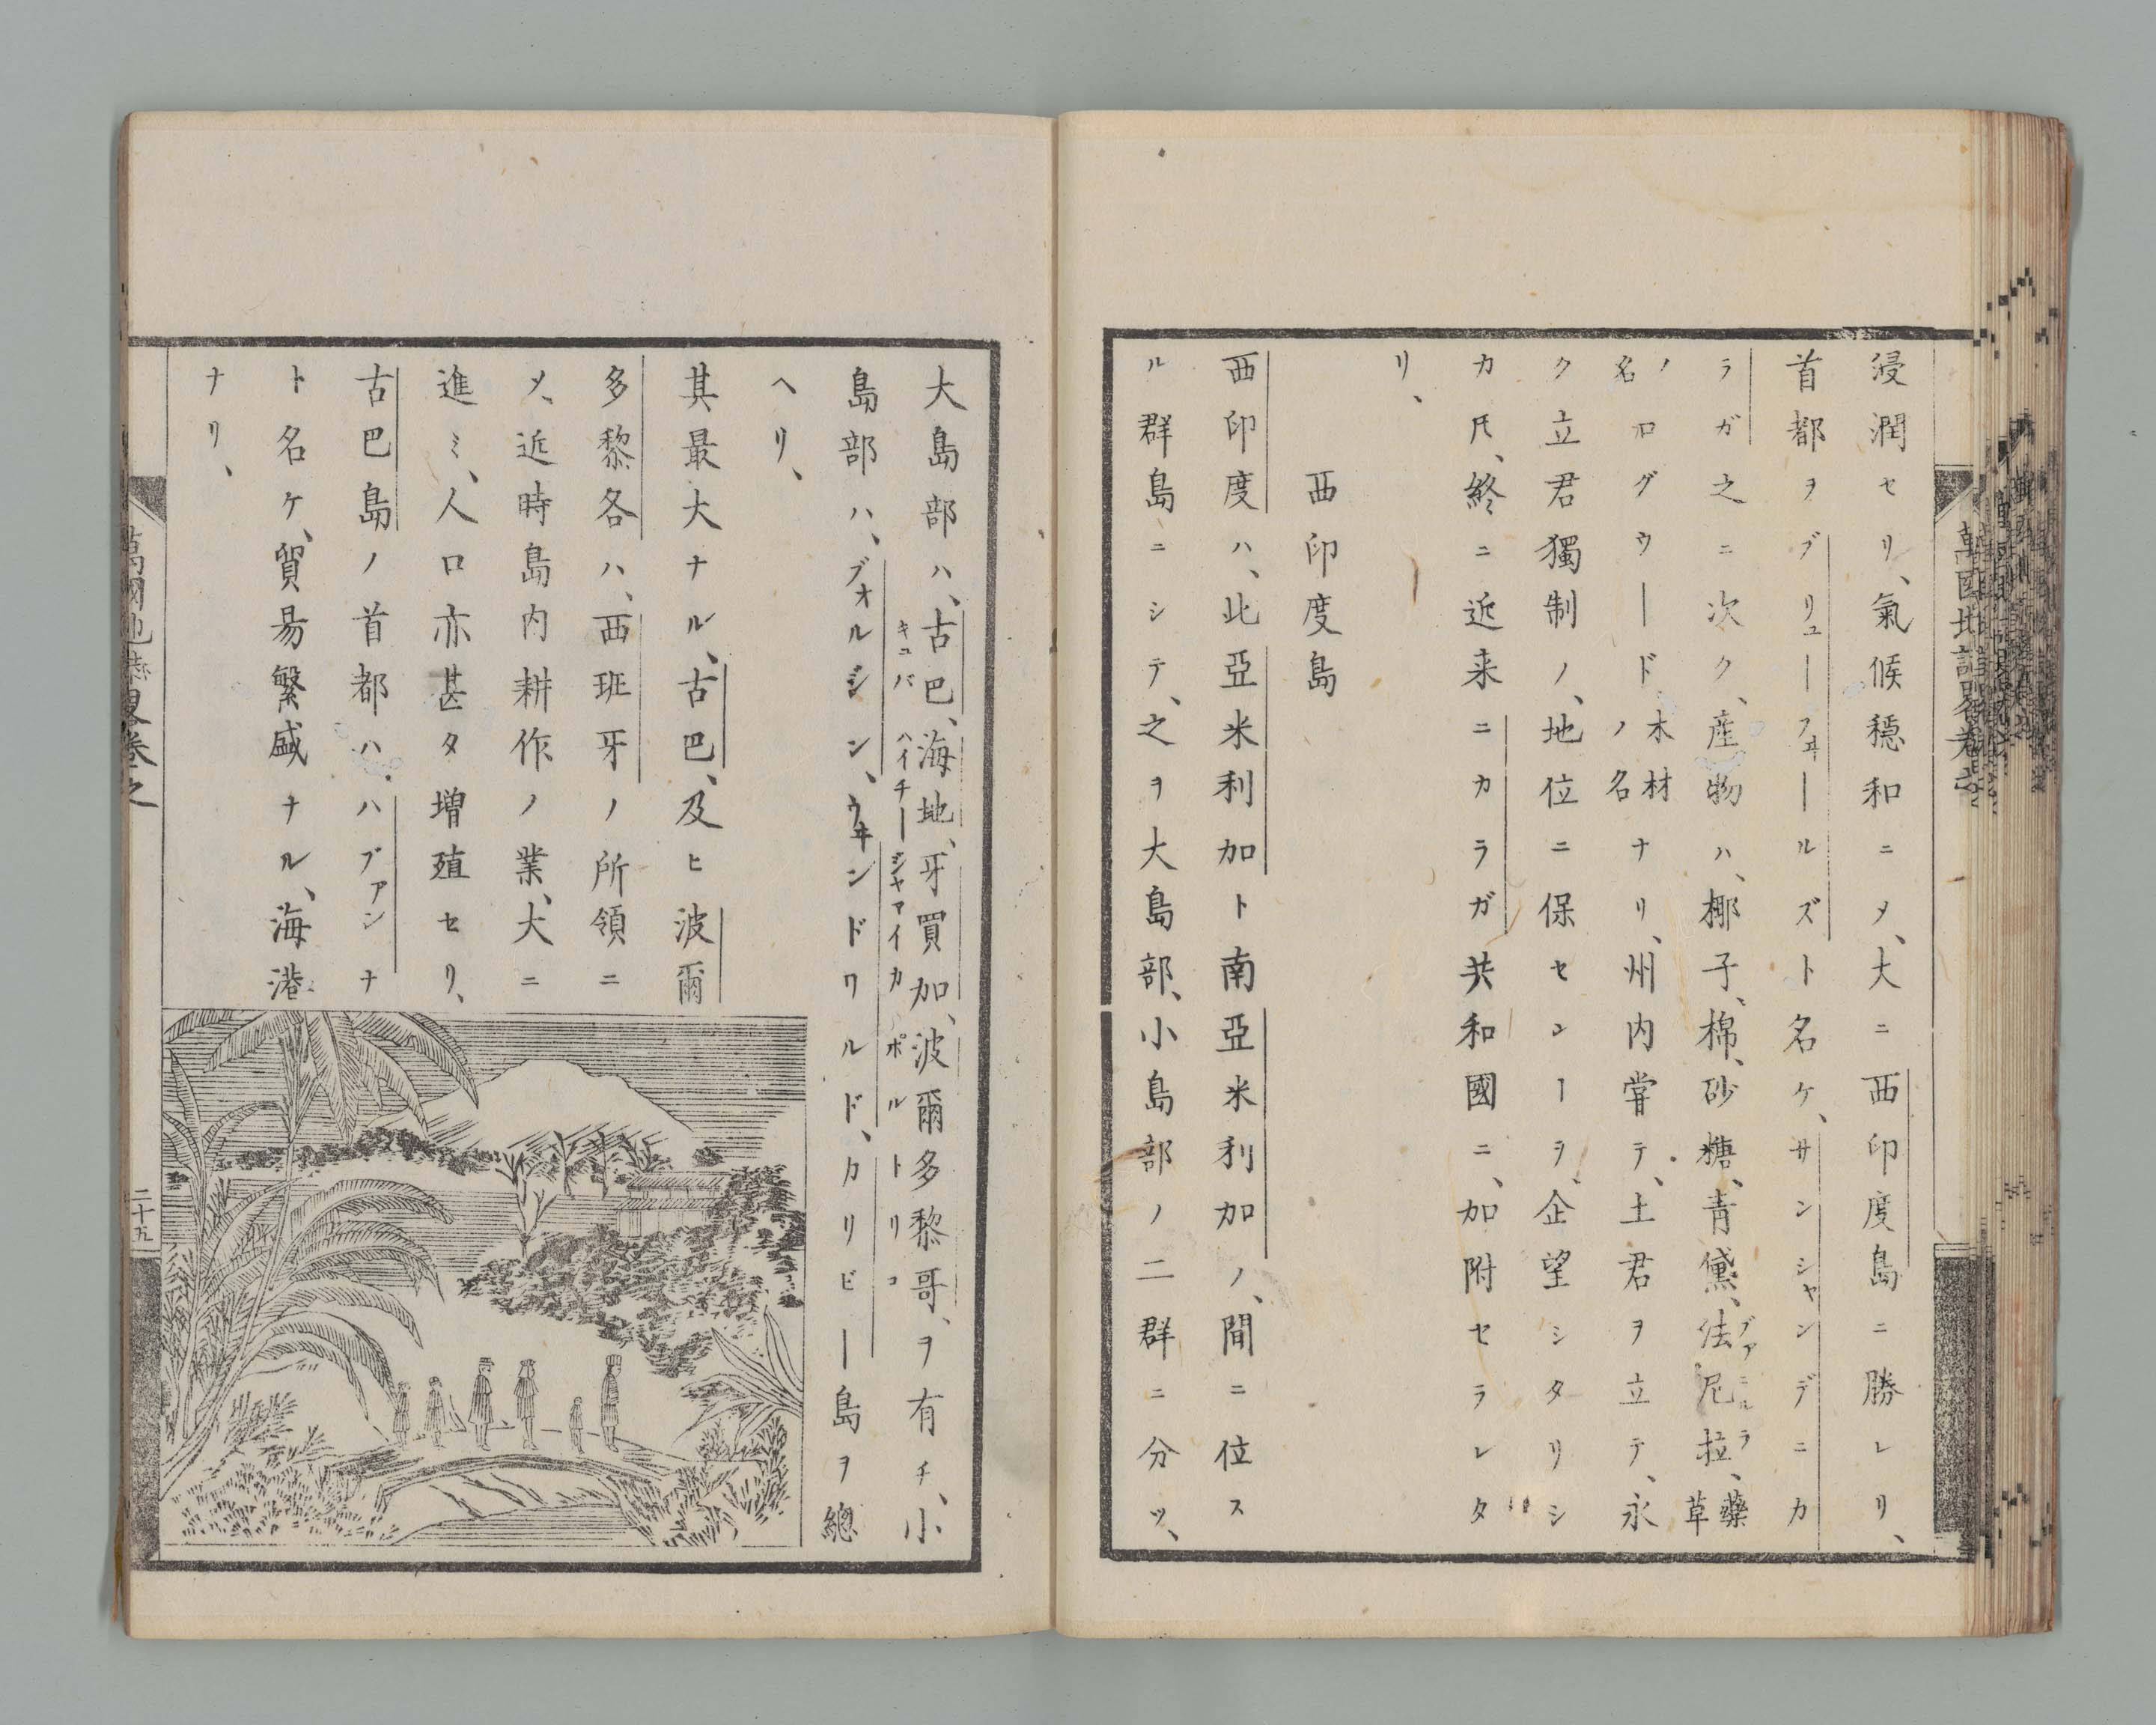 浸潤セリ、氣候穏和ニメ、大ニ西印度島ニ勝レリ、
首都ヲブリューフヰールズト名ケ、サンシャンデニカ
ラガ之ニ次ク、産物ハ、椰子、棉、砂糖、青黛、法尼拉、藥草
ブァニルラ
ノ名ログウード、木材ノ名ナリ、州内甞テ、土君ヲ立テ、永
ク立君獨制ノ、地位ニ保センヿヲ、企望シタリシ
カ𪜈、終ニ近来ニカラガ共和國ニ、加附セラレタ
リ、
西印度島
西印度ハ、此亞米利加ト南亞米利加ノ、間ニ位ス
ル群島ニシテ、之ヲ大島部、小島部ノ二群ニ分ツ、
大島部ハ、古巴、海地、牙買加、波爾多黎哥、ヲ有チ、小
キュバ ハイチー ジャマイカ ポルトリコ
島部ハ、ブォルジン、ウヰンドワルド、カリビー島ヲ總
ヘリ、
其最大ナル、古巴、及ヒ波爾
多黎各ハ、西班牙ノ所領ニ
メ、近時島内耕作ノ業、大ニ
進ミ、人口亦甚タ増殖セリ、
古巴島ノ首都ハ、ハブァンナ
ト名ケ、貿易繁盛ナル、海港
ナリ、
萬國地誌畧巻之
二十五